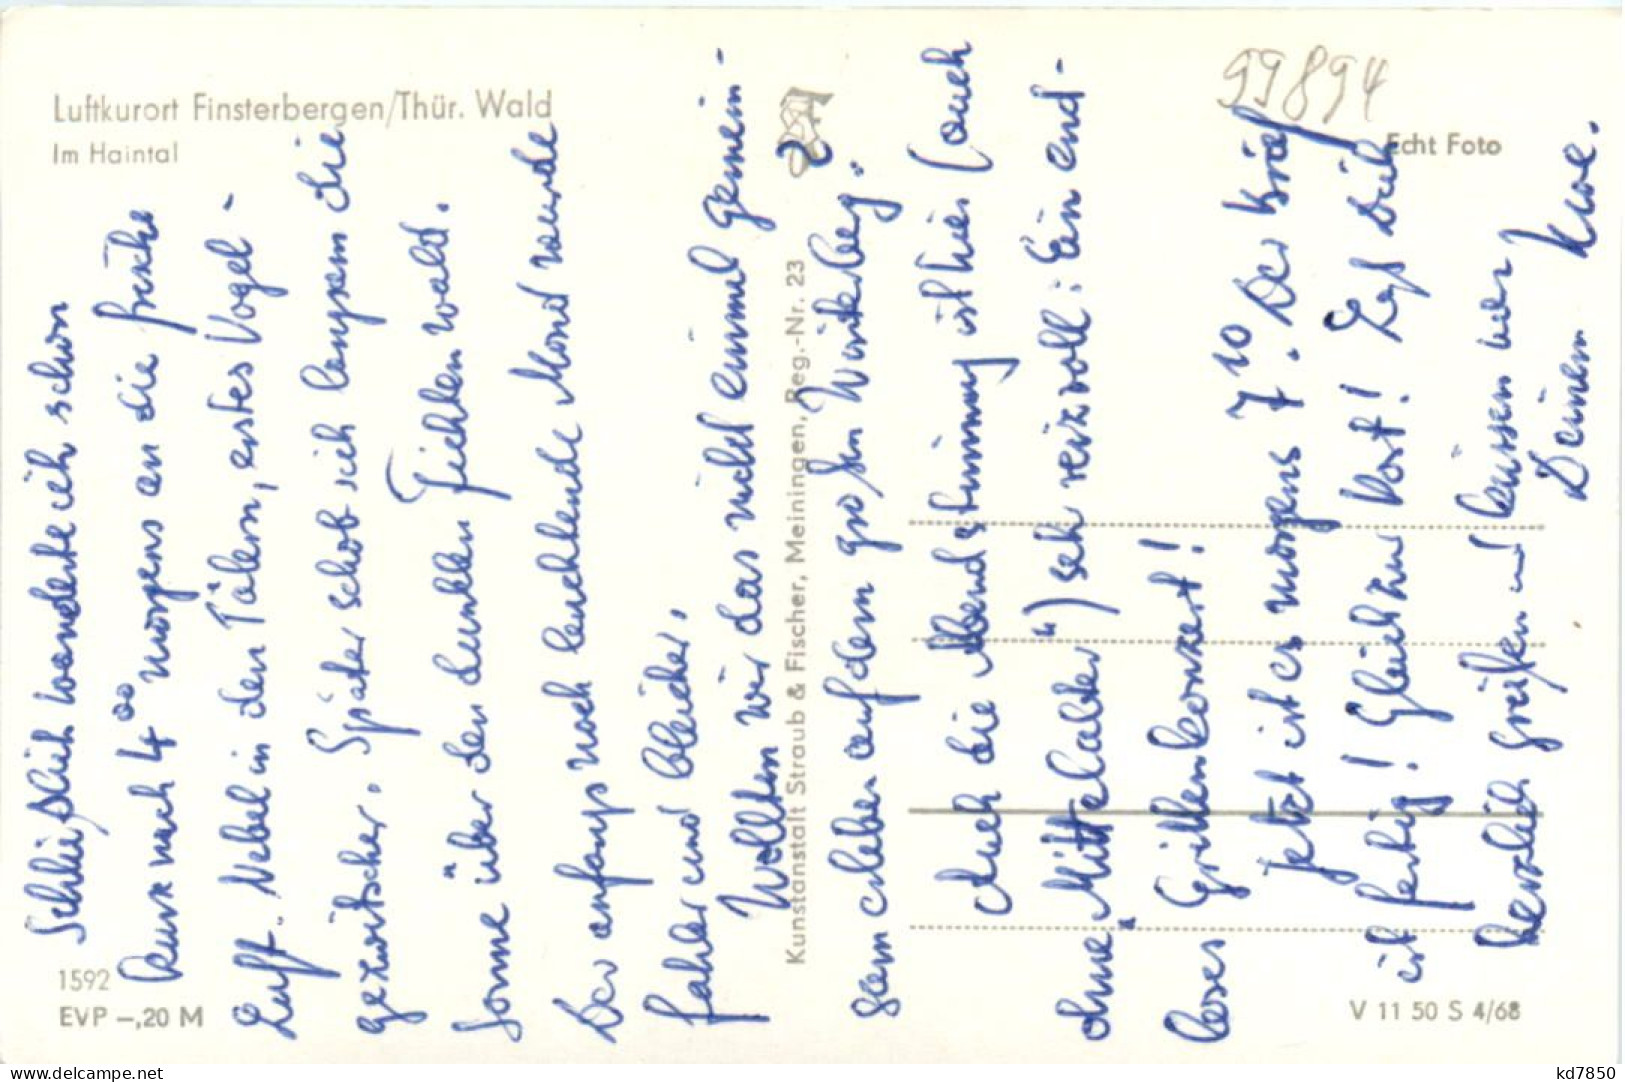 Luftkurort Finsterbergen/Thür. Wald
Im Haintal
99894
Echt Foto
Schließlich wanderte ich schon
kurz nach 4⁰⁰ morgens an die frische
Luft. Nebel in den Tälern, erstes Vogel-
gezwitscher. Später schob sich langsam die
Sonne über den dunklen Fichtenwald.
Der anfangs noch leuchtende Mond wurde
fahler und bleicher.
Wollten wir das nicht einmal gemein-
sam erleben auf dem großen Winterberg?
Auch die Abendstimmung ist hier (auch
ohne "Mittelalter") sehr reizvoll: Ein end-
loses Grillenkonzert!
Jetzt ist es morgens 7¹⁰. Der Brief
ist fertig! Gleich zur Post! Laß Dich
herzlich grüßen und küssen von
Deinem
Kunstanstalt Straub & Fischer, Meiningen, Reg.-Nr. 23
1592
EVP –,20 M
V 11 50 S 4/68
www.delcampe.net
kd7850